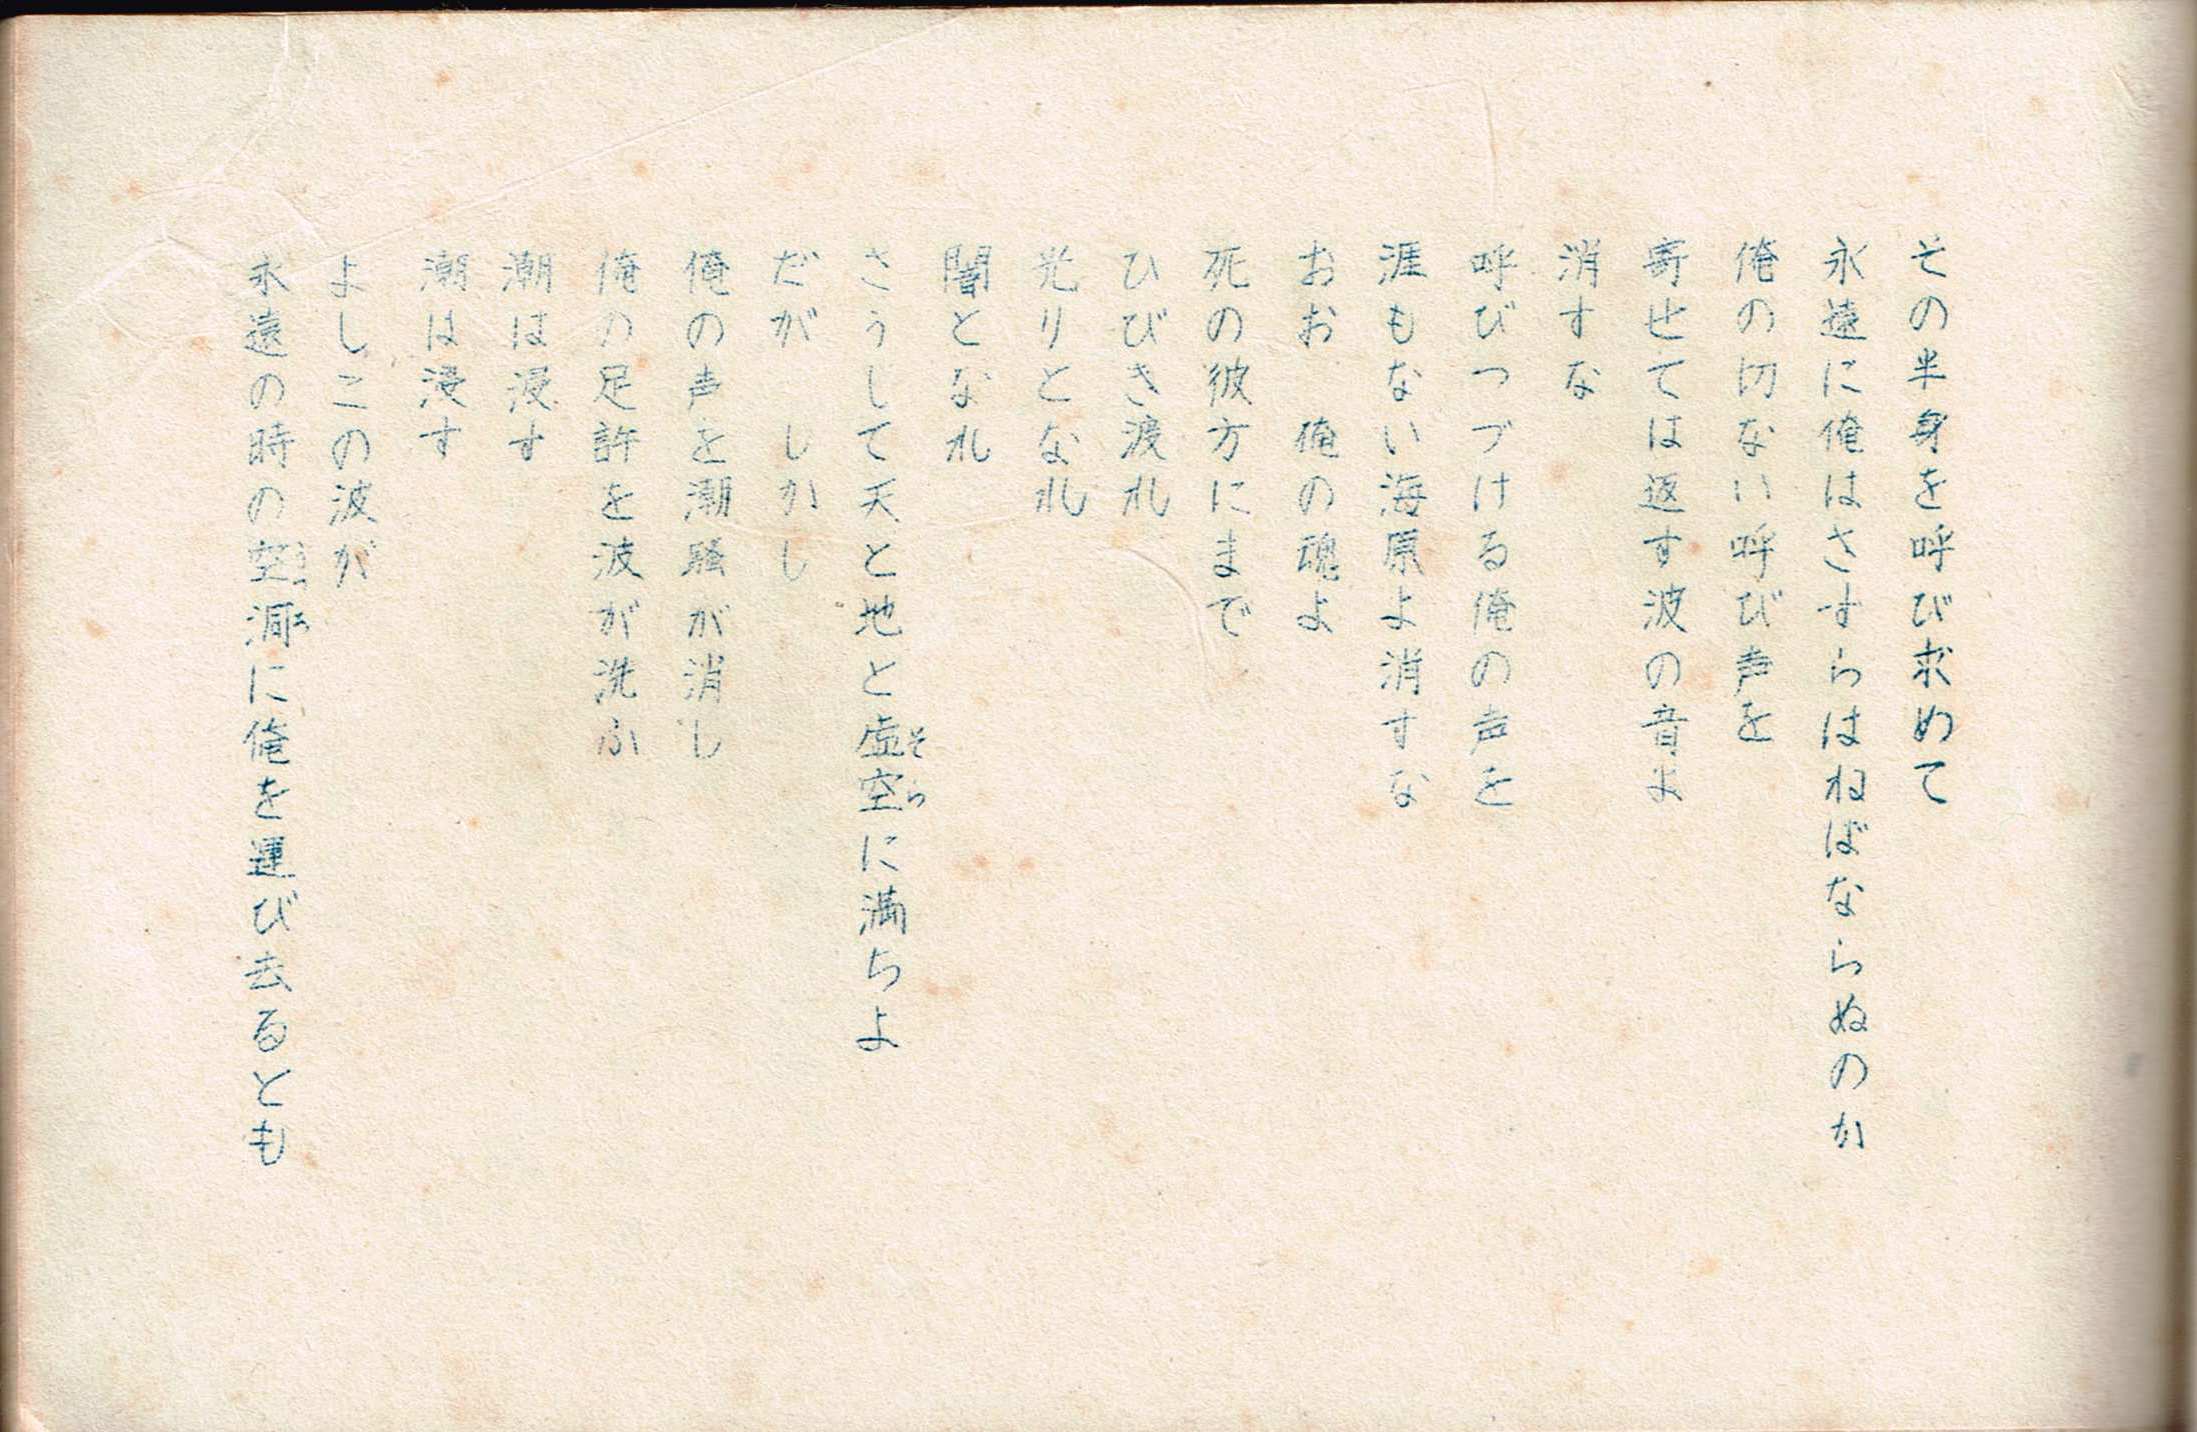 その半身を呼び求めて
永遠に俺はさすらはねばならぬのか
俺の切ない呼び声を
寄せては返す波の音よ
消すな
呼びつづける俺の声を
涯もない海原よ消すな
おお　俺の魂よ
死の彼方にまで
ひびき渡れ
光りとなれ
闇となれ
さうして天と地と虚空に満ちよ
そら
だが　しかし
俺の声を潮騒が消し
俺の足許を波が洗ふ
潮は浸す
潮は浸す
よしこの波が
永遠の時の空洞に俺を運び去るとも
うつろ